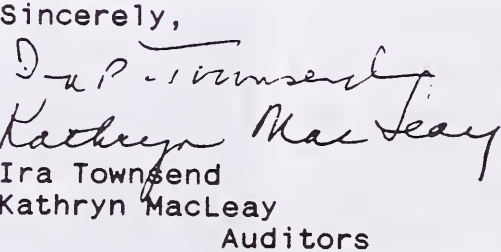 Sincerely,
Ira P. Townsend
Kathryn MacLeay
Ira Townsend
Kathryn MacLeay
Auditors